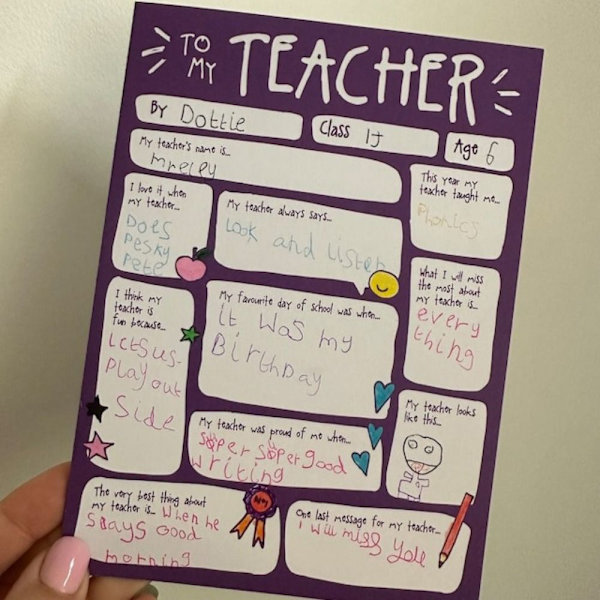 TO
MY
TEACHER
By Dottie
Class 1J
Age 6
My teacher's name is...
mreley
This year my
teacher taught me...
Phonics
I love it when
my teacher...
Does
Pesky
Pete
My teacher always says...
Look and listen
What I will miss
the most about
my teacher is...
every
thing
I think my
teacher is
fun because...
Letsus
Play out
Side
My favourite day of school was when...
it was my
Birthday
My teacher looks
like this...
My teacher was proud of me when...
super super good
writing
The very best thing about
my teacher is... when he
says Good
morning
One last message for my teacher...
I will miss you